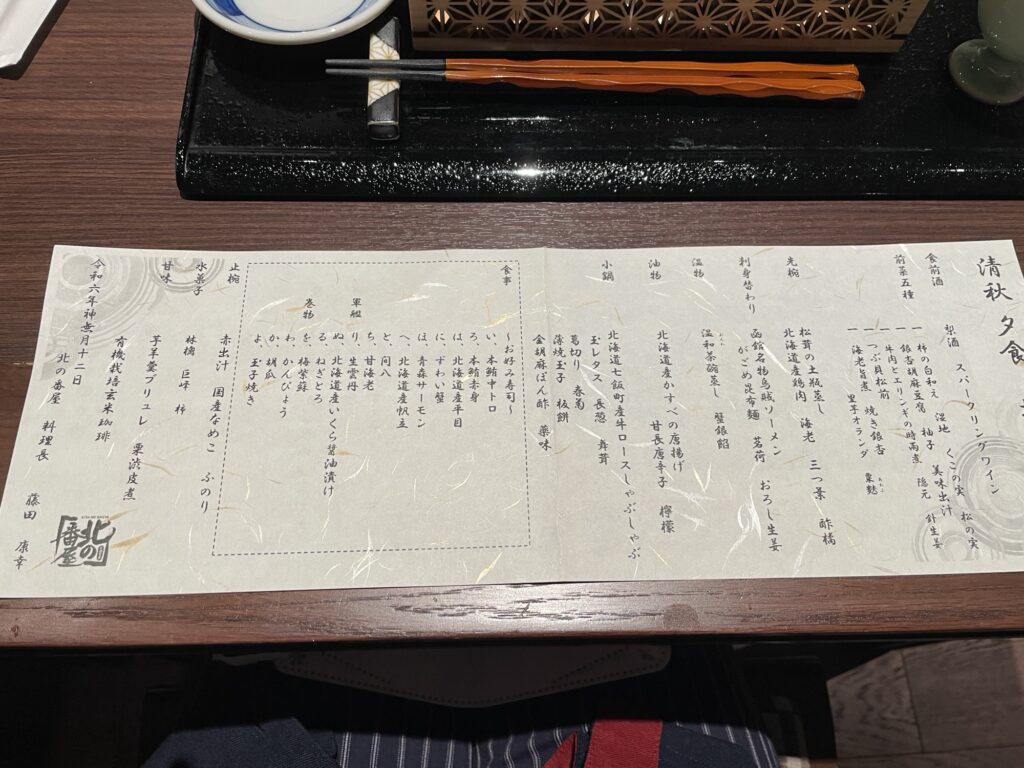 清秋 夕食
食前酒
梨酒 スパークリングワイン
前菜五種
一 柿の白和え 湿地 くこの実 松の実
一 銀杏胡麻豆腐 柚子 美味出汁
一 牛肉とエリンギの時雨煮 隠元 針生姜
一 つぶ貝松前 焼き銀杏
一 海老旨煮 里芋オランダ 粟麩
先椀
松茸の土瓶蒸し 海老 三つ葉 酢橘
北海道産鶏肉
刺身替わり
函館名物烏賊ソーメン
がごめ昆布麺 茗荷 おろし生姜
温物
温和茶碗蒸し 蟹銀餡
油物
北海道産かすべの唐揚げ
甘長唐辛子 檸檬
小鍋
北海道七飯町産牛ロースしゃぶしゃぶ
玉レタス 長葱 舞茸
葛切り 春菊
薄焼玉子 板餅
金胡麻ぽん酢 薬味
食事
〜お好み寿司〜
い、本鮪中トロ
ろ、本鮪赤身
は、北海道産平目
に、ずわい蟹
ほ、青森サーモン
へ、北海道産帆立
と、間八
ち、甘海老
軍艦
り、生雲丹
ぬ、北海道産いくら醤油漬け
る、ねぎとろ
巻物
を、梅紫蘇
わ、かんぴょう
か、胡瓜
よ、玉子焼き
止椀
赤出汁 国産なめこ ふのり
水菓子
林檎 巨峰 柿
甘味
芋羊羹ブリュレ 栗渋皮煮
有機栽培玄米珈琲
令和六年神無月十二日
北の番屋 料理長 藤田 康幸
北の番屋